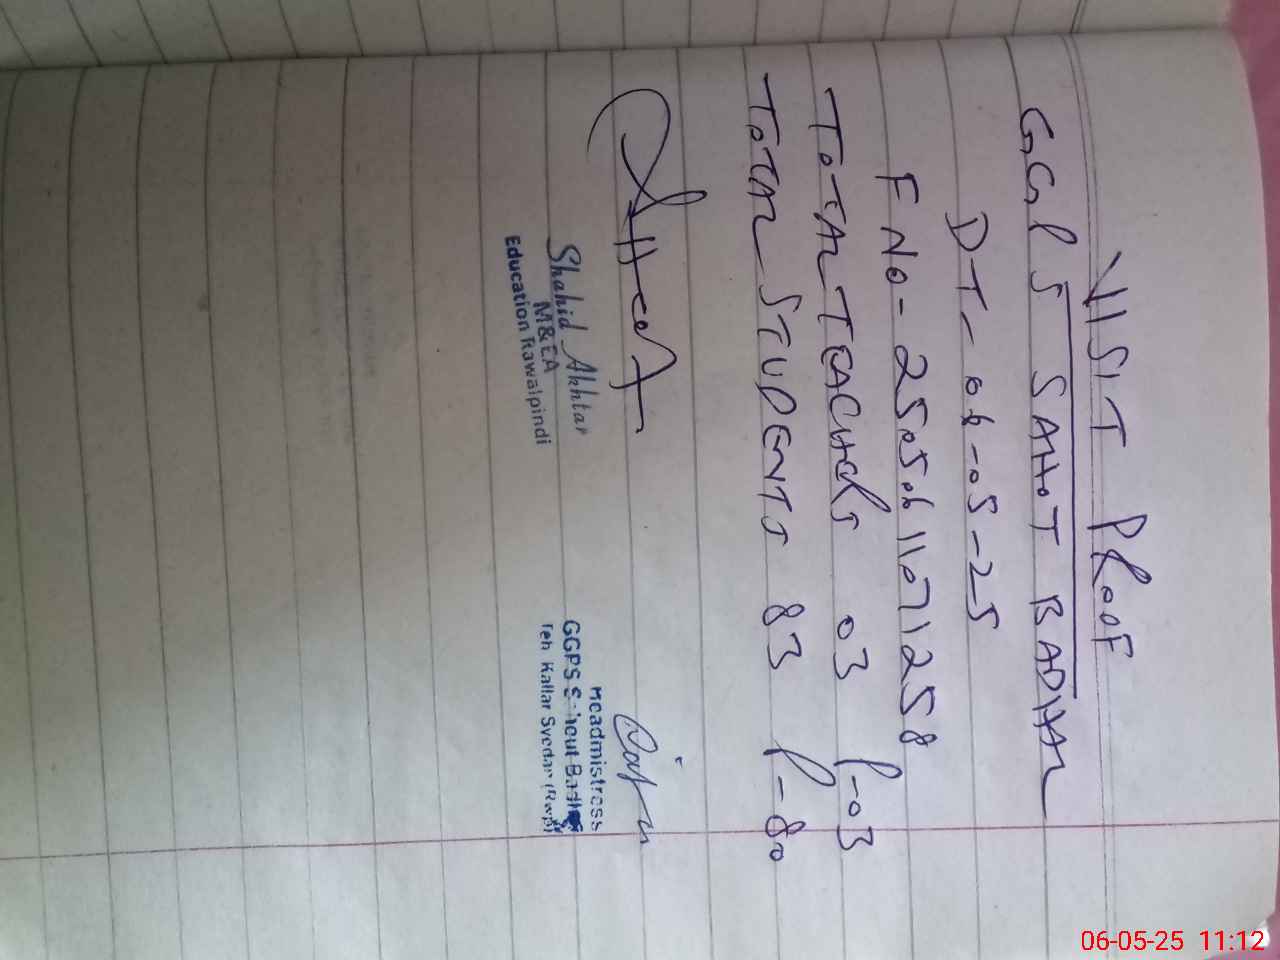 VISIT PROOF
GGPS SAHOT BADHAL
DT- 06-05-25
F NO- 25050611071258
TOTAL TEACHERS 03 P-03
TOTAL STUDENTS 83 P-80
Shahid Akhtar
M&EA
Education Rawalpindi
Headmistress
GGPS Sahout Badhal
Teh Kallar Syedan (Rwp)
06-05-25 11:12